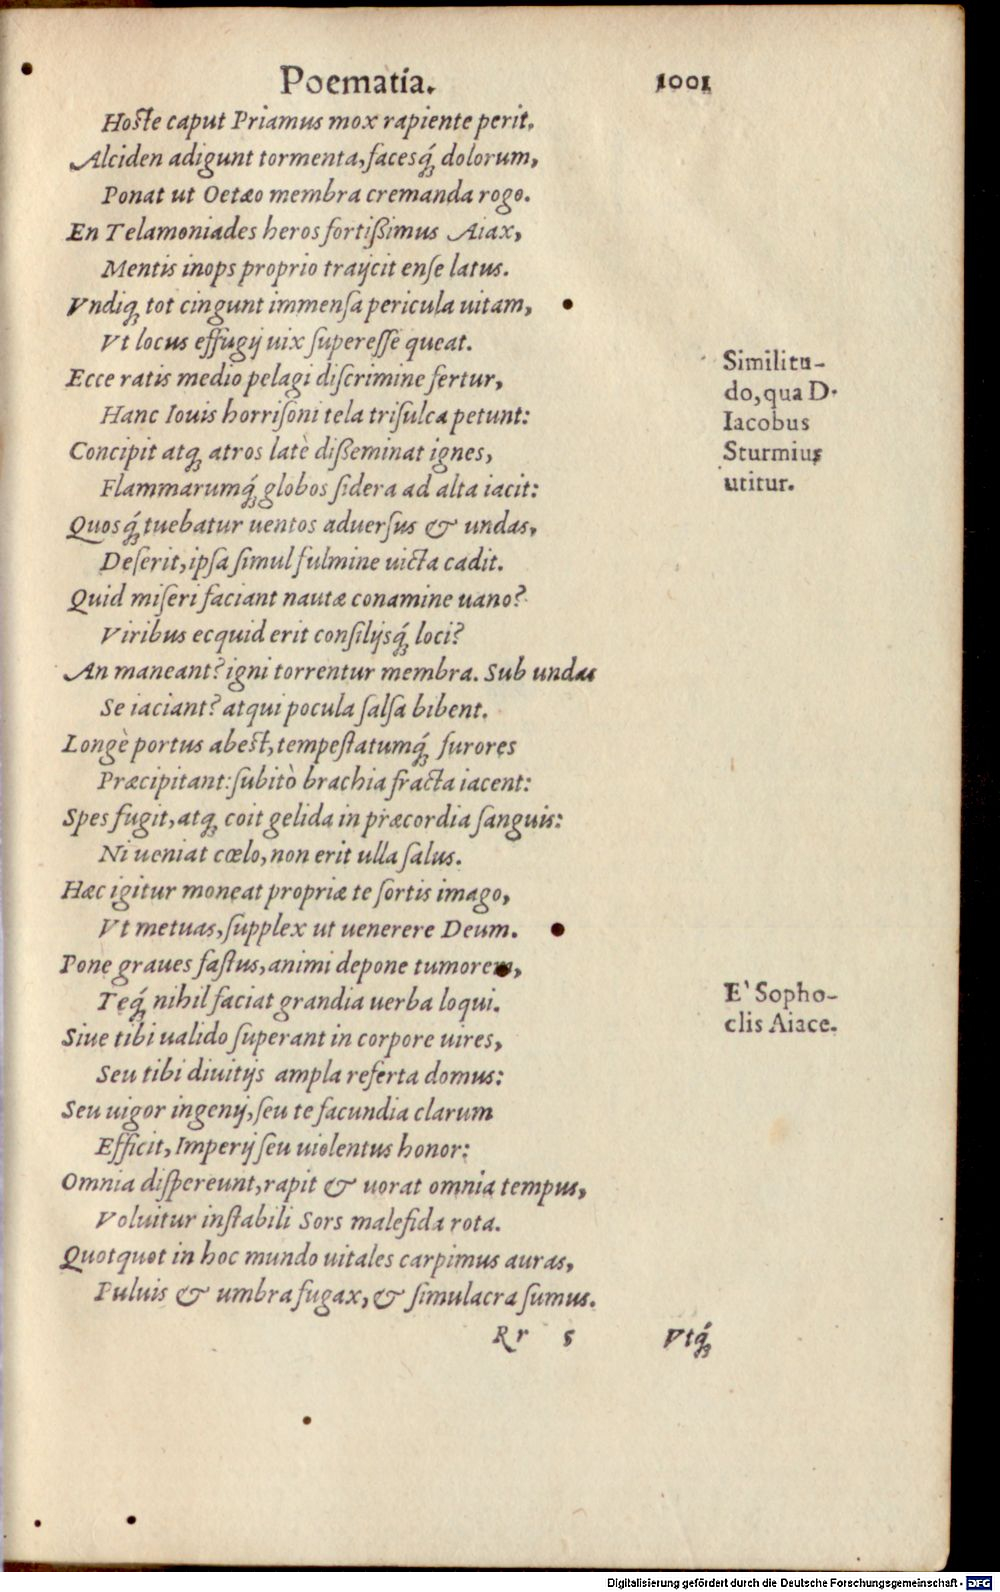 Poematia. 1001
Hoſte caput Priamus mox rapiente perit.
Alciden adigunt tormenta, faceſq́ꝫ dolorum,
Ponat ut Oetæo membra cremanda rogo.
En Telamoniades heros fortißimus Aiax,
Mentis inops proprio traijcit enſe latus.
Vndiqꝫ tot cingunt immenſa pericula uitam,
Vt locus effugij uix ſupereſſe queat.
Ecce ratis medio pelagi diſcrimine fertur,
Hanc Iouis horriſoni tela triſulca petunt:
Concipit atqꝫ atros latè dißeminat ignes,
Flammarumq́ꝫ globos ſidera ad alta iacit:
Quosq́ꝫ tuebatur uentos aduerſus & undas,
Deſerit, ipſa ſimul fulmine uicta cadit.
Quid miſeri faciant nautæ conamine uano?
Viribus ecquid erit conſilijsq́ꝫ loci?
An maneant? igni torrentur membra. Sub undas
Se iaciant? atqui pocula ſalſa bibent.
Longè portus abeſt, tempeſtatumq́ꝫ furores
Præcipitant: ſubitò brachia fracta iacent:
Spes fugit, atqꝫ coit gelida in præcordia ſanguis:
Ni ueniat cœlo, non erit ulla ſalus.
Hæc igitur moneat propriæ te ſortis imago,
Vt metuas, ſupplex ut uenerere Deum.
Pone graues faſtus, animi depone tumorem,
Teq́ꝫ nihil faciat grandia uerba loqui.
Siue tibi ualido ſuperant in corpore uires,
Seu tibi diuitijs ampla referta domus:
Seu uigor ingenij, ſeu te facundia clarum
Efficit, Imperij ſeu uiolentus honor:
Omnia diſpereunt, rapit & uorat omnia tempus,
Voluitur inſtabili Sors malefida rota.
Quotquot in hoc mundo uitales carpimus auras,
Puluis & umbra fugax, & ſimulacra ſumus.
Rr 5 Vtq́ꝫ
Similitu-
do, qua D.
Iacobus
Sturmius
utitur.
E' Sopho-
clis Aiace.
Digitalisierung gefördert durch die Deutsche Forschungsgemeinschaft - DFG